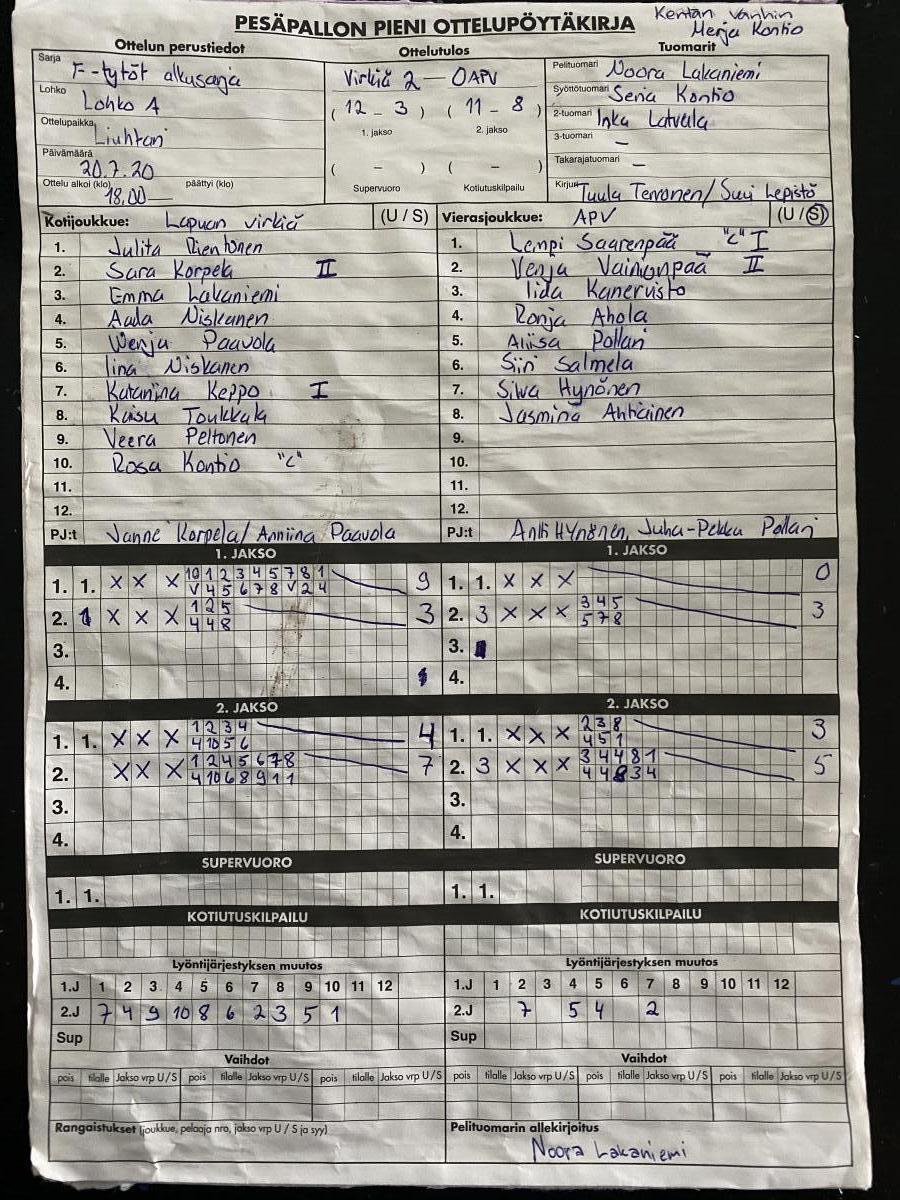 PESÄPALLON PIENI OTTELUPÖYTÄKIRJA
Kentän vanhin
Merja Kontio
Ottelun perustiedot
Ottelutulos
Tuomarit
Sarja F-tytöt alkusarja
Lohko Lohko A
Ottelupaikka Liuhtari
Päivämäärä 20.7.20
Ottelu alkoi (klo) 18.00 päättyi (klo)
Virkiä 2 — OAPV
( 12 - 3 ) ( 11 - 8 )
1. jakso 2. jakso
( - ) ( - )
Supervuoro Kotiutuskilpailu
Pelituomari Noora Lakaniemi
Syöttötuomari Senja Kontio
2-tuomari Inka Latvala
3-tuomari -
Takarajatuomari -
Kirjuri Tuula Tervonen/ Suvi Lepistö
Kotijoukkue: Lapuan virkiä (U / S)
1. Julita
2. Sara Korpela II
3. Emma Lakaniemi
4. Aada Niskanen
5. Wenja Paavola
6. Iina Niskanen
7. Katariina Keppo I
8. Kaisu Toukkala
9. Veera Peltonen
10. Rosa Kontio "C"
11.
12.
PJ:t Janne Korpela/ Anniina Paavola
Vierasjoukkue: APV (U / S)
1. Lempi Saarenpää "C" I
2. Venja Vainionpää II
3. Iida Kanervisto
4. Ronja Ahola
5. Aliisa Pollari
6. Siiri Salmela
7. Silva Hynönen
8. Jasmina Ahtiainen
9.
10.
11.
12.
PJ:t Antti Hynönen, Juha-Pekka Pollari
1. JAKSO
1. 1. X X X 10 1 2 3 4 5 7 8 1 9
V 4 5 6 7 8 V 2 4
2. 1 X X X 1 2 5 3
4 4 8
3.
4.
1. JAKSO
1. 1. X X X 0
2. 3 X X X 3 4 5 3
5 7 8
3.
4.
2. JAKSO
1. 1. X X X 1 2 3 4 4
4 10 5 6
2. X X X 1 2 4 5 6 7 8 7
4 10 6 8 9 1 1
3.
4.
2. JAKSO
1. 1. X X X 2 3 8 3
4 5 1
2. 3 X X X 3 4 4 8 1 5
4 4 8 3 4
3.
4.
SUPERVUORO
1. 1.
SUPERVUORO
1. 1.
KOTIUTUSKILPAILU
KOTIUTUSKILPAILU
Lyöntijärjestyksen muutos
1.J 1 2 3 4 5 6 7 8 9 10 11 12
2.J 7 4 9 10 8 6 2 3 5 1
Sup
Lyöntijärjestyksen muutos
1.J 1 2 3 4 5 6 7 8 9 10 11 12
2.J 7 5 4 2
Sup
Vaihdot
pois tilalle Jakso vrp U/S pois tilalle Jakso vrp U/S pois tilalle Jakso vrp U/S
Vaihdot
pois tilalle Jakso vrp U/S pois tilalle Jakso vrp U/S pois tilalle Jakso vrp U/S
Rangaistukset (joukkue, pelaaja nro, jakso vrp U / S ja syy)
Pelituomarin allekirjoitus
Noora Lakaniemi